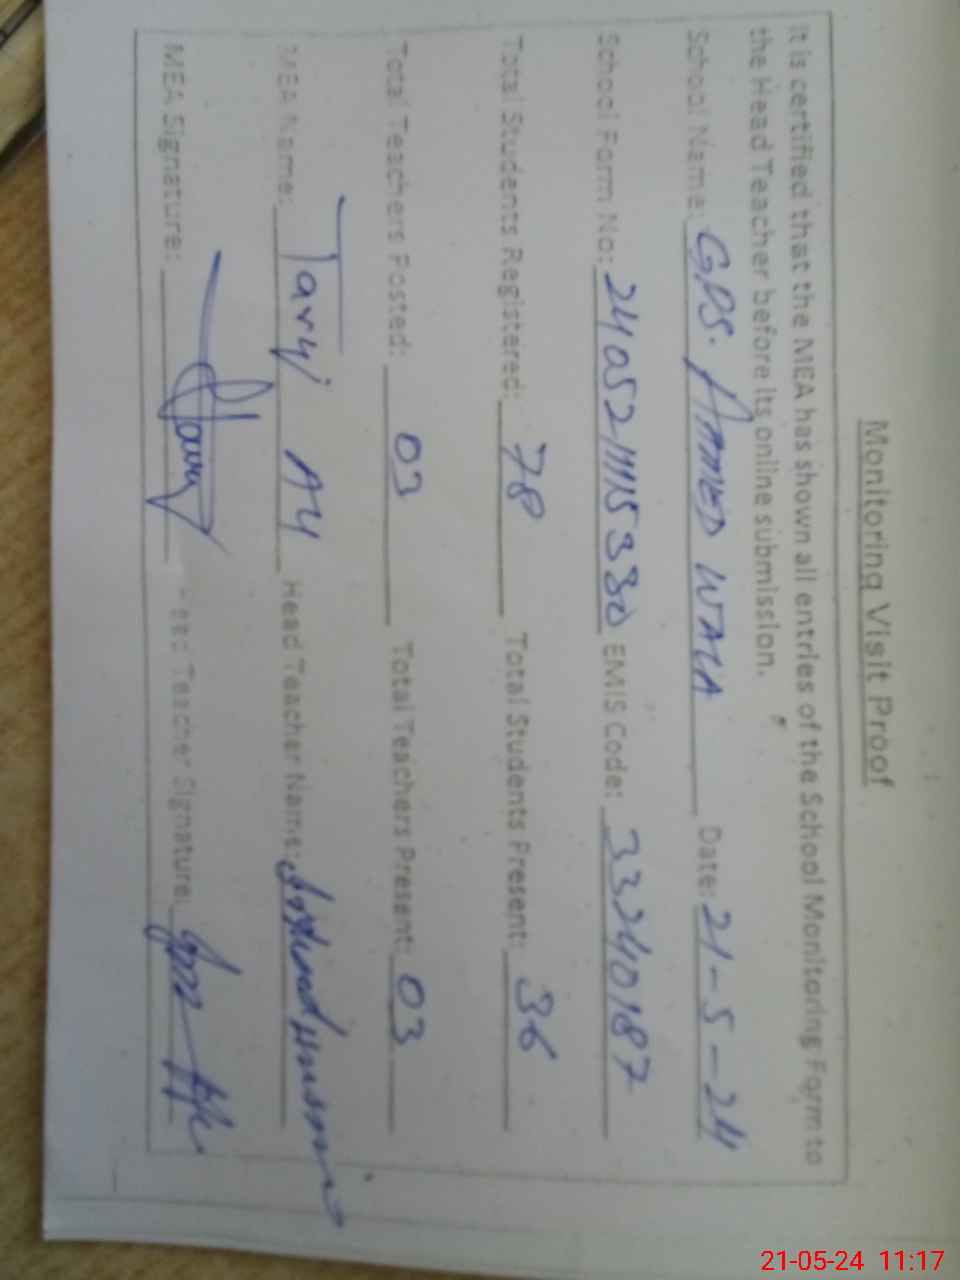 Monitoring Visit Proof
It is certified that the MEA has shown all entries of the School Monitoring Form to
the Head Teacher before its online submission.
School Name: G.P.S. AHMED WALA Date: 21-5-24
School Form No: EMIS Code: 33240187
Total Students Registered: 78 Total Students Present: 36
Total Teachers Posted: 03 Total Teachers Present: 03
MEA Name: Head Teacher Name:
MEA Signature: Head Teacher Signature:
21-05-24 11:17